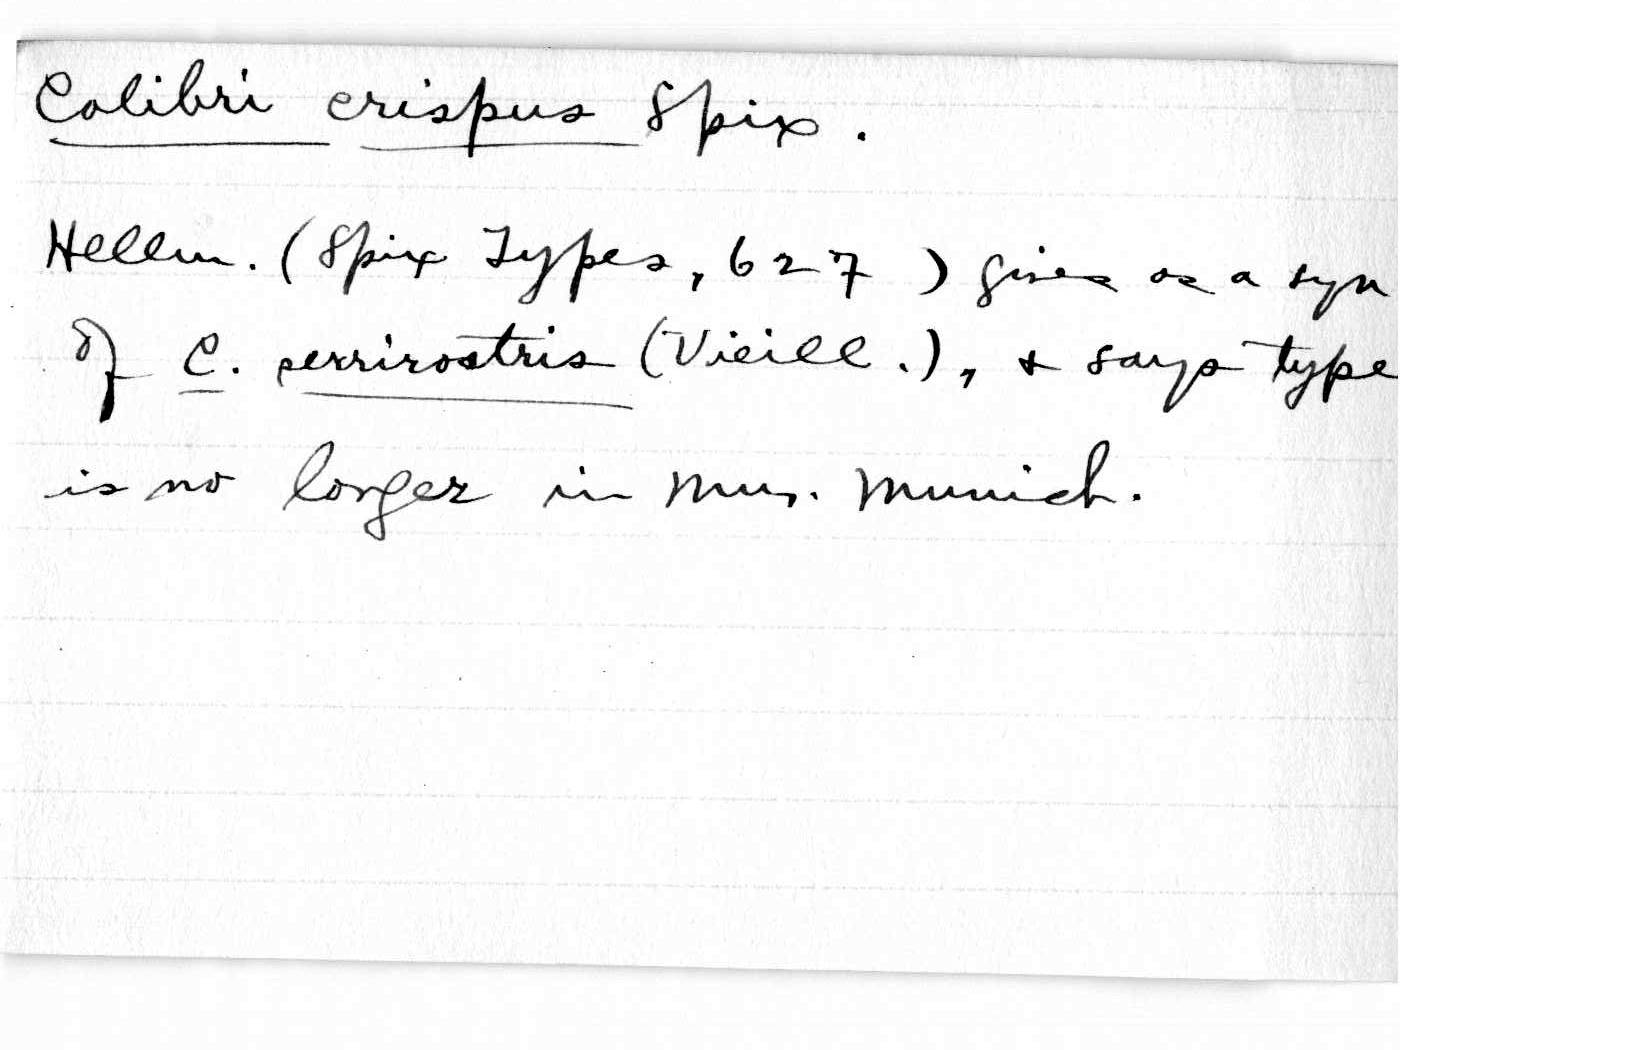 Colibri crispus Spix.
Hellm. (Spix Types, 627) gives as a syn
of C. serrirostris (Vieill.), & says type
is no longer in Mus. Munich.